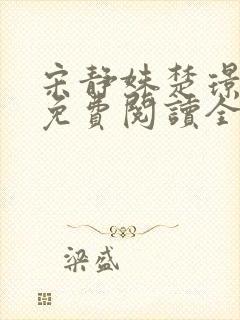 宋静姝楚璟
免費閱讀全
梁盛